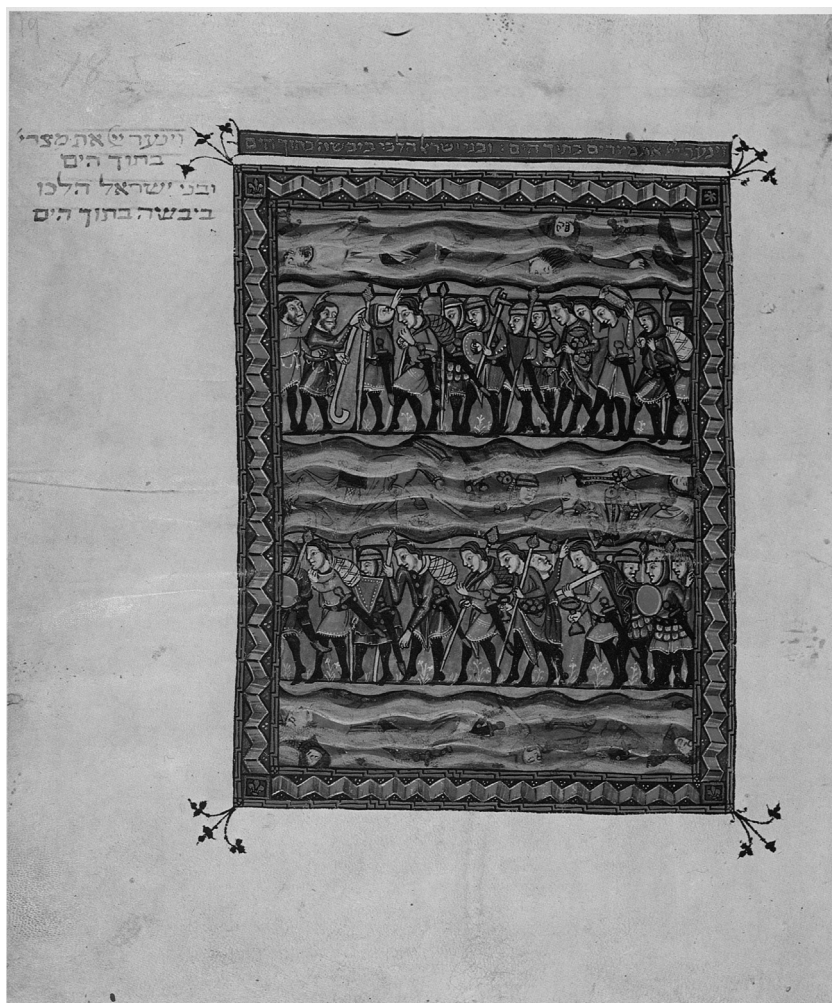 את מצרים בתוך הים ובני ישראל הלכו ביבשה בתוך הים
וינער את מצרי'
בתוך הים
ובני ישראל הלכו
ביבשה בתוך הים